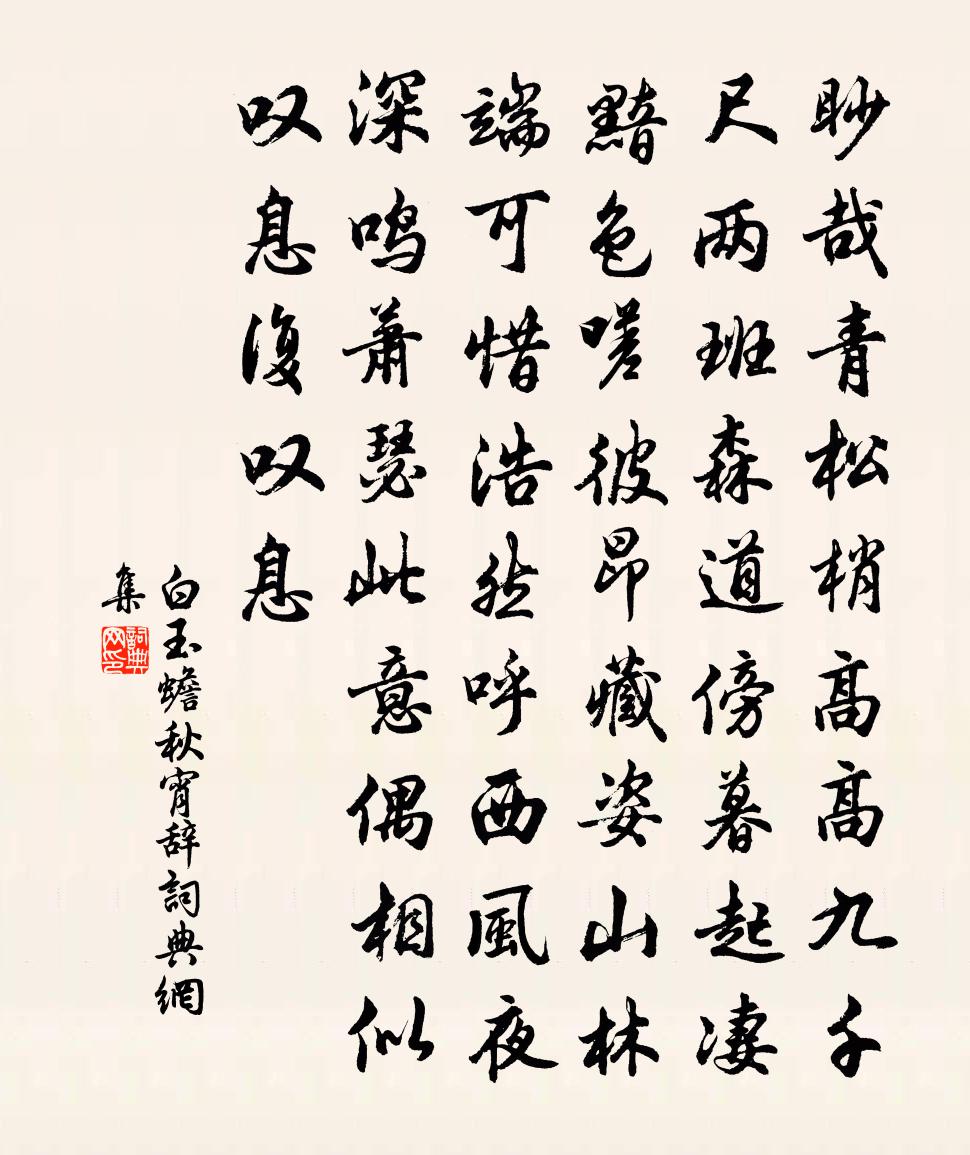 眇哉青松梢高高九千
尺两班森道傍暮起凄
黯色嗟彼昂藏姿山林
端可惜浩然呼西風夜
深鸣萧瑟此意偶相似
叹息復叹息
白玉蟾秋宵辞詞典網
集
詞典
网印